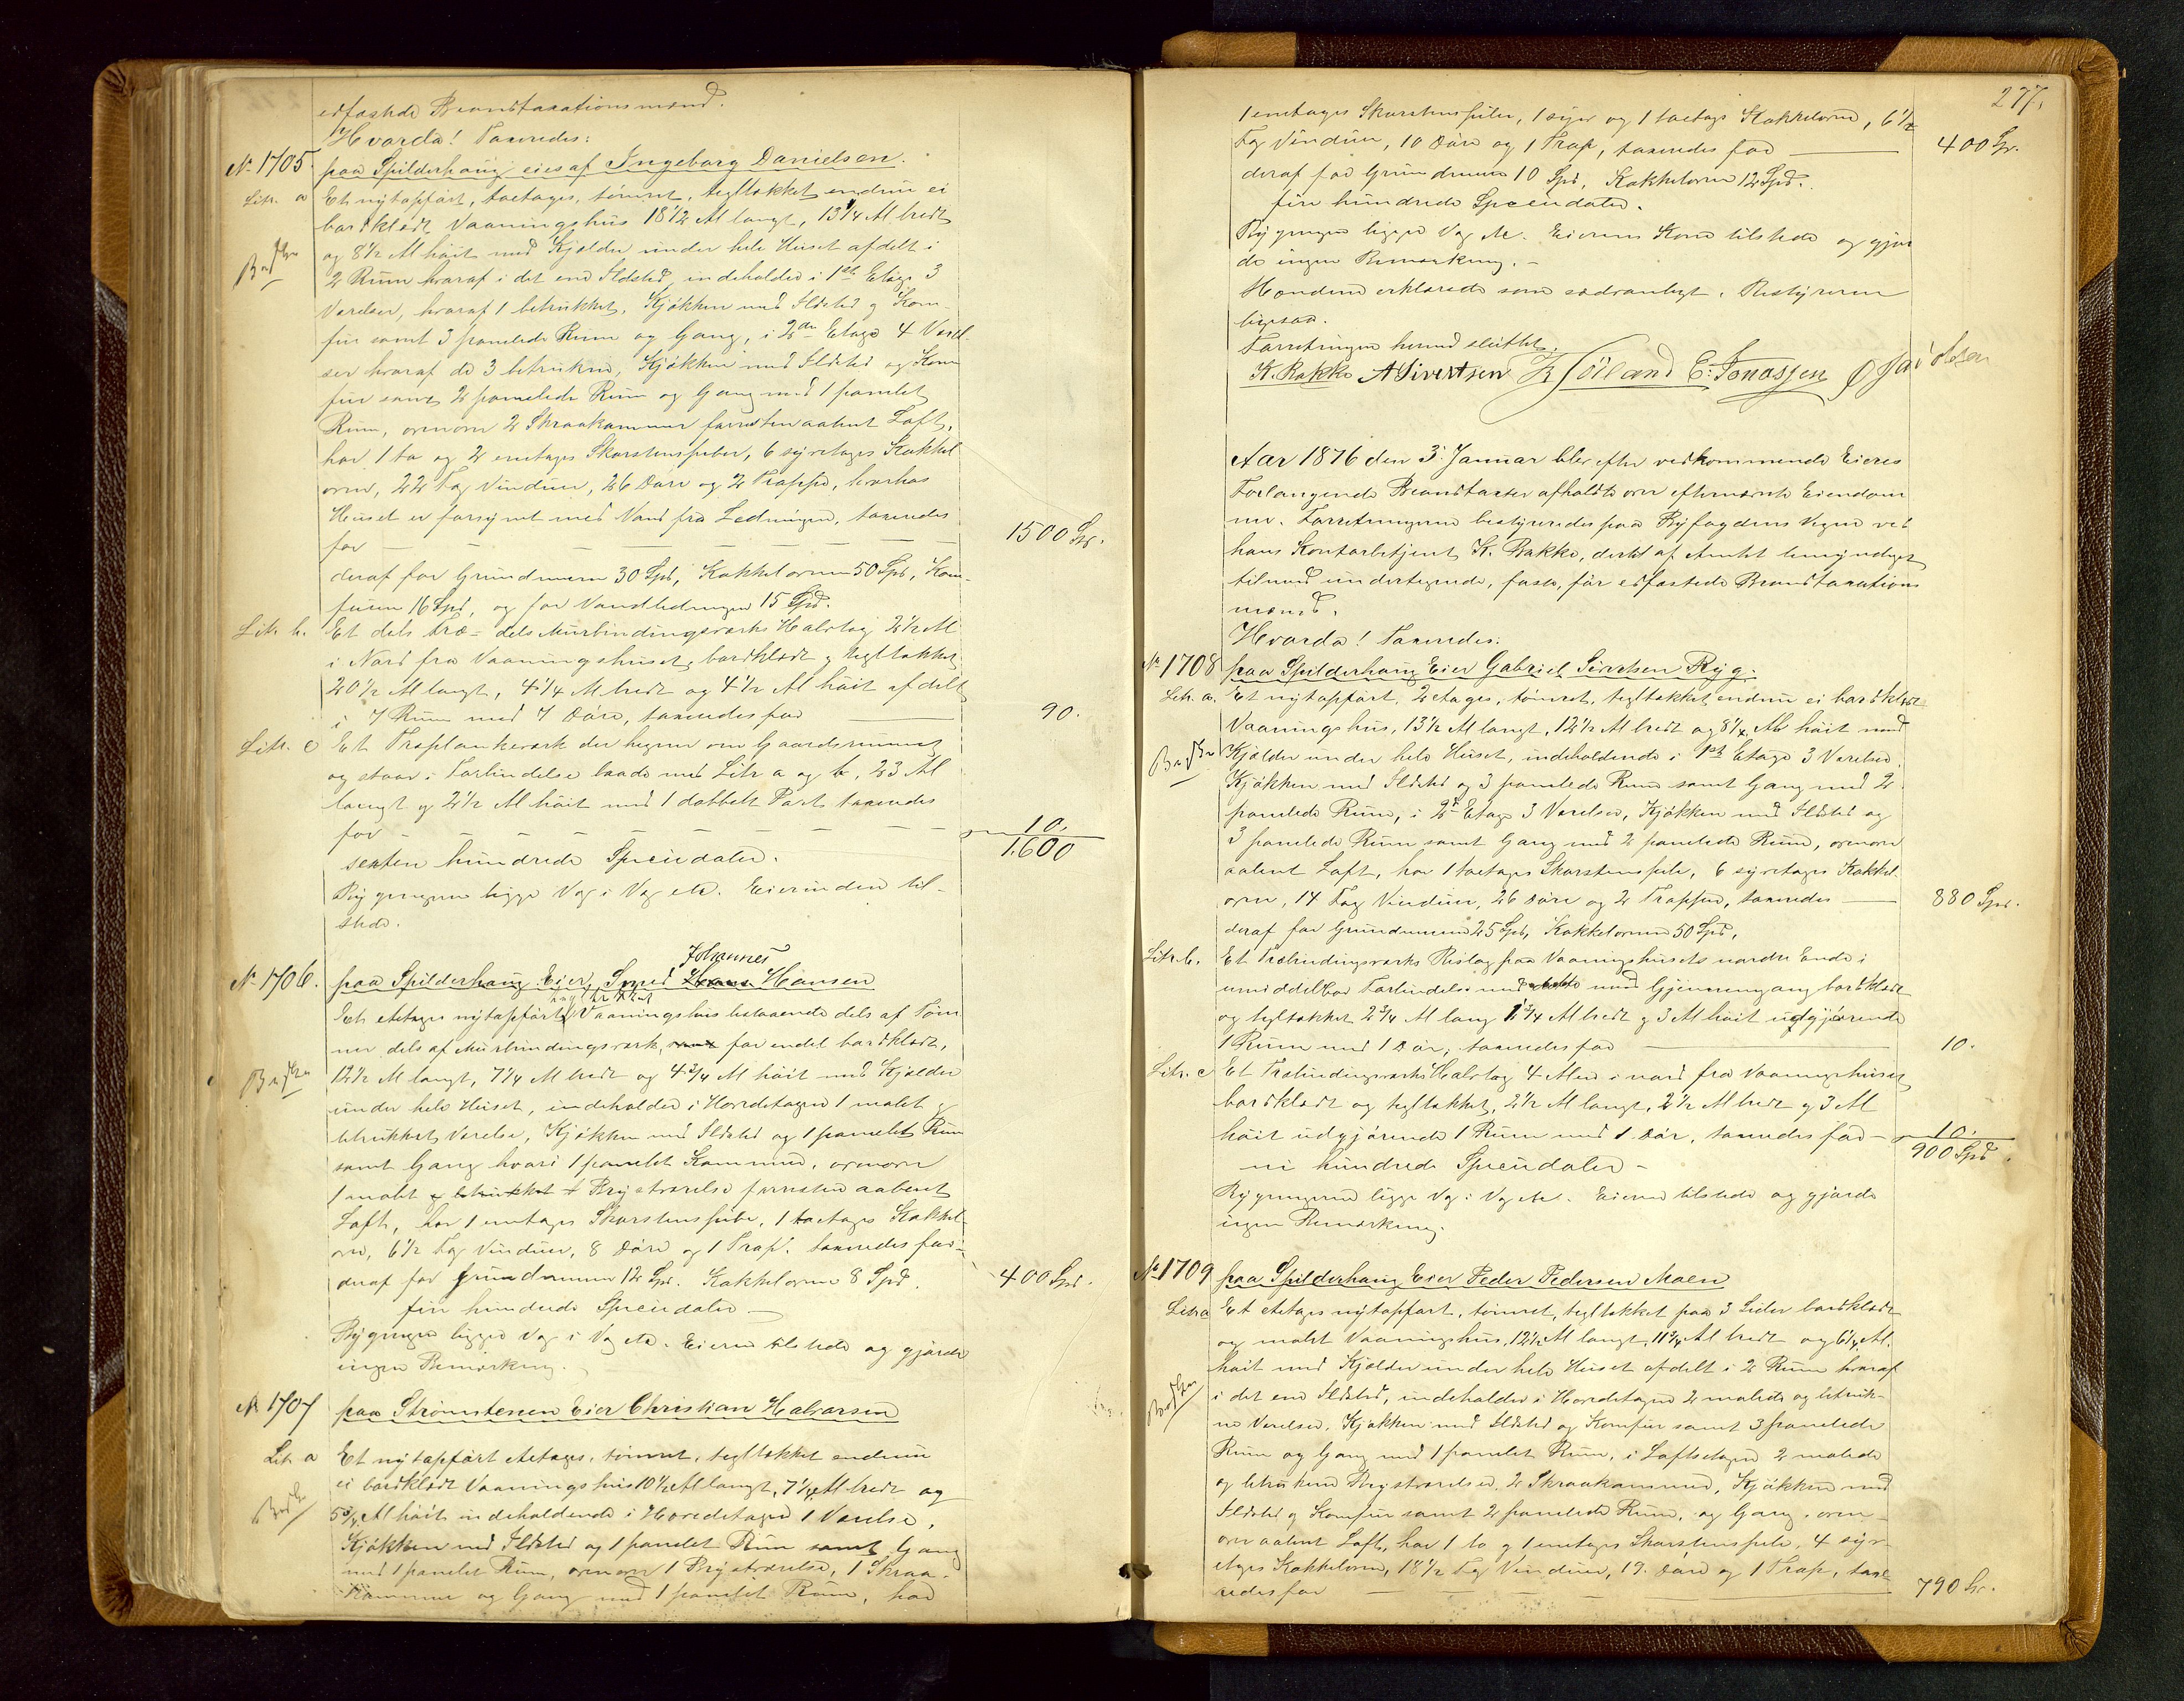 edfæstede Brandtaxationsmænd.
Hvorda! Taxeredes:
No 1705. paa Spilderhaug eies af Ingeborg Danielsen.
Litr. a Et nytopført, toetages, tømret, tegltækket endnu ei
bordklædt Vaaningshus 18 1/2 Al langt, 13 1/4 Al bredt
og 8 1/2 Al høit med Kjælder under hele Huset afdelt i
2 Rum hvoraf i det ene Ildsted, indeholder i 1ste Etage 3
Værelser, hvoraf 1 betrukket, Kjøkken med Ildsted og Kom-
für samt 3 panelede Rum og Gang, i 2den Etage 4 Værel-
ser hvoraf de 3 betrukne, Kjøkken med Ildsted og Kom
für samt 2 panelede Rum og Gang med 1 panelet
Rum, ovenover 2 Skraakammer forresten aabent Loft,
har 1 to og 2 enetages Skorstenspiber, 6 syvetages Kakkel
ovne, 22 Fag Vinduer, 26 Døre og 2 Trapper, hvorhos
Huset er forsynet med Vand fra Ledningen, taxeredes
for — — — — — — — 1500 Spd.
deraf for Grundmuren 30 Spd, Kakkelovnene 50 Spd, Kom-
fürene 16 Spd, og for Vandledningen 15 Spd.
Litr. b. Et dels Træ- dels Murbindingsværks Halvtag 2 1/2 Al
i Nord fra Vaaningshuset, bordklædt og tegltækket
20 1/2 Al langt, 4 1/4 Al bredt og 4 1/2 Al høit afdelt
i 7 Rum med 7 Døre, taxeredes for — 90.
Litr. c Et Træplankeværk der hegner om Gaardsrummet
og staar i Forbindelse baade med Litr a og b, 23 Al
langt og 2 1/2 Al høit med 1 dobbelt Port taxeredes
for - — — — — — — — 10.
1600
sexten hundrede Speciedaler.
Bygningerne ligge Vag i Vag etc. Eierinden til-
stede.
Johannes
No 1706. paa Spilderhaug Eier, Smed Hansen
tegltækket
Et etetages nytopført Vaaningshus bestaaende dels af Tøm
mer dels af Murbindingsværk, for endel bordklædt,
12 1/2 Al langt, 7 1/4 Al bredt og 4 3/4 Al høit med Kjælder
under hele Huset, indeholder i Hovedetagen 1 malet og
betrukket Værelse, Kjøkken med Ildsted og 1 panelet Rum
samt Gang hvori 1 panelet Kammer, ovenover
1 malet og betrukket Brystværelse forresten aabent
Loft, har 1 enetages Skorstenspibe, 1 toetages Kakkel-
ovn, 6 1/2 Fag Vinduer, 8 Døre og 1 Trap. taxeredes for — 400 Spd.
deraf for Grundmuren 12 Spd. Kakkelovnen 8 Spd.
fire hundrede Speciedaler —
Bygningen ligger Vag i Vag etc. Eieren tilstede og gjorde
ingen Bemærkning.
No 1707 paa Strømstenen Eier Christian Halvorsen
Litr. a Et nytopført etetages, tømret, tegltækket endnu
ei bordklædt Vaaningshus 10 1/2 Al langt, 7 1/4 Al bredt og
5 3/4 Al høit indeholdende i Hovedetagen 1 Værelse,
Kjøkken med Ildsted og 1 panelet Rum samt Gang
med 1 panelet Rum, ovenover 1 Brystværelse, 1 Skraa-
kammer og Gang med 1 panelet Rum, har
277.
1 enetages Skorstenspibe, 1 og 1 toetages Kakkelovn, 6 1/2
Fag Vinduer, 10 Døre og 1 Trap, taxeredes for — 400 Sp.
deraf for Grundmuren 10 Spd, Kakkelovne 12 Spd.
fire hundrede Speciedaler.
Bygningen ligger Vag etc. Eierens Kone tilstede og gjor
de ingen Bemærkning. —
Mændene erklærede som sædvanligt. Bestyreren
ligesaa.
Forretningen hermed sluttet.
K. Bakke A Sivertsen E. Jonassen
Aar 1876 den 3 Januar blev efter vedkommende Eieres
Forlangende Brandtaxter afholdte over efternævnte Eiendom
me. Forretningerne bestyreredes paa Byfogdens Vegne ved
hans Kontorbetjent K. Bakke, dertil af Amtet bemyndiget
tilmed undertegnede, faste, før edfæstede Brandtaxations
mænd.
Hvorda! Taxeredes:
No 1708 paa Spilderhaug Eier Gabriel Sivertsen Ryg.
Litr. a. Et nytopført, 2 etages, tømret, tegltækket endnu ei bordklædt
Vaaningshus, 13 1/2 Al langt, 12 1/2 Al bredt og 8 1/4 Al høit med
Kjælder under hele Huset, indeholdende i 1ste Etage 3 Værelser,
Kjøkken med Ildsted og 3 panelede Rum samt Gang med 2
panelede Rum, i 2den Etage 3 Værelser, Kjøkken med Ildsted og
3 panelede Rum samt Gang med 2 panelede Rum, ovenover
aabent Loft, har 1 toetages Skorstenspibe, 6 syvetages Kakkel-
ovne, 14 Fag Vinduer, 26 Døre og 2 Trapper, taxeredes — 880 Spd.
deraf for Grundmuren 25 Spd, Kakkelovnene 50 Spd,
Litr. b. Et Træbindingsværks Bislag paa Vaaningshusets nordre Ende i
umiddelbar Forbindelse med Gjennemgang bordklædt
og tegltækket 2 3/4 Al lang 1 3/4 Al bredt og 3 Al høit udgjørende
1 Rum med 1 Dør, taxeredes for — 10.
Litr. c Et Træbindingsværks Halvtag 4 Alen i nord fra Vaaningshuset
bordklædt og tegltækket, 2 1/2 Al langt, 2 1/2 Al bredt og 3 Al
høit udgjørende 1 Rum med 1 Dør, taxeredes for — 10.
900 Spd.
ni hundrede Speciedaler —
Bygningerne ligge Vag i Vag etc. Eieren tilstede og gjorde
ingen Bemærkning.
No 1709 paa Spilderhaug Eier Peder Pedersen Moen
Litr a Et etetages nytopført, tømret, tegltækket paa 3 Sider bordklædt
og malet Vaaningshus, 12 1/2 Al langt, 11 3/4 Al bredt og 6 1/4 Al.
høit med Kjælder under hele Huset afdelt i 2 Rum hvoraf
i det ene Ildsted, indeholder i Hovedetagen 2 malede og betruk-
ne Værelser, Kjøkken med Ildsted og Komfür samt 3 panelede
Rum og Gang med 1 panelet Rum, i Loftsetagen 2 malede
og betrukne Brystværelser, 2 Skraakammer, Kjøkken med
Ildsted og Komfür samt 2 panelede Rum, og Gang, oven-
over aabent Loft, har 1 to og 1 enetages Skorstenspibe, 4 syv-
etages Kakkelovne, 18 1/2 Fag Vinduer, 19 Døre og 1 Trap, taxe
redes for — — — 790 Sp.